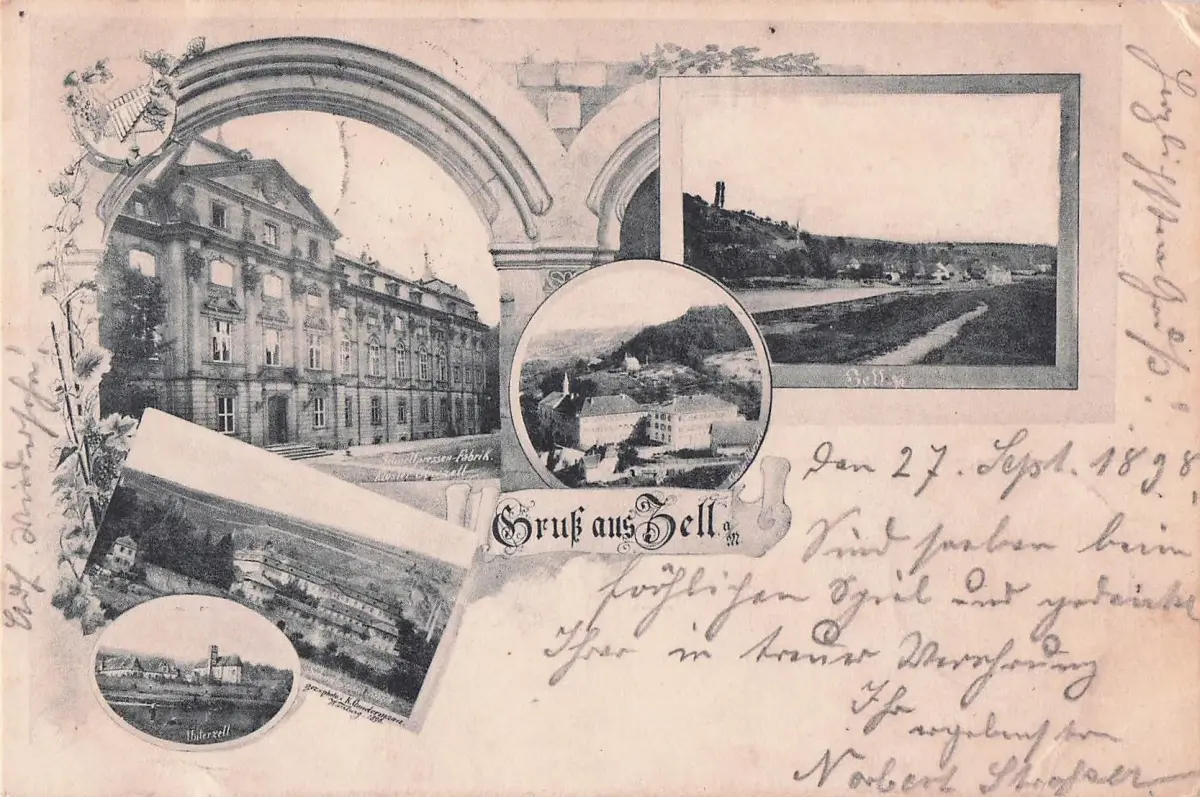 Schnellpressen-Fabrik
Kloster Oberzell.
Zell a/M
Gruß aus Zell a/M
Unterzell
Würzburg 1898.
Den 27. Sept. 1898
Sind soeben beim
fröhlichen Spiel und gedenken
Ihrer in treuer Verehrung
Ihr
ergebenster
Norbert
Herzlichsten Gruß!
Auf Wiedersehn!